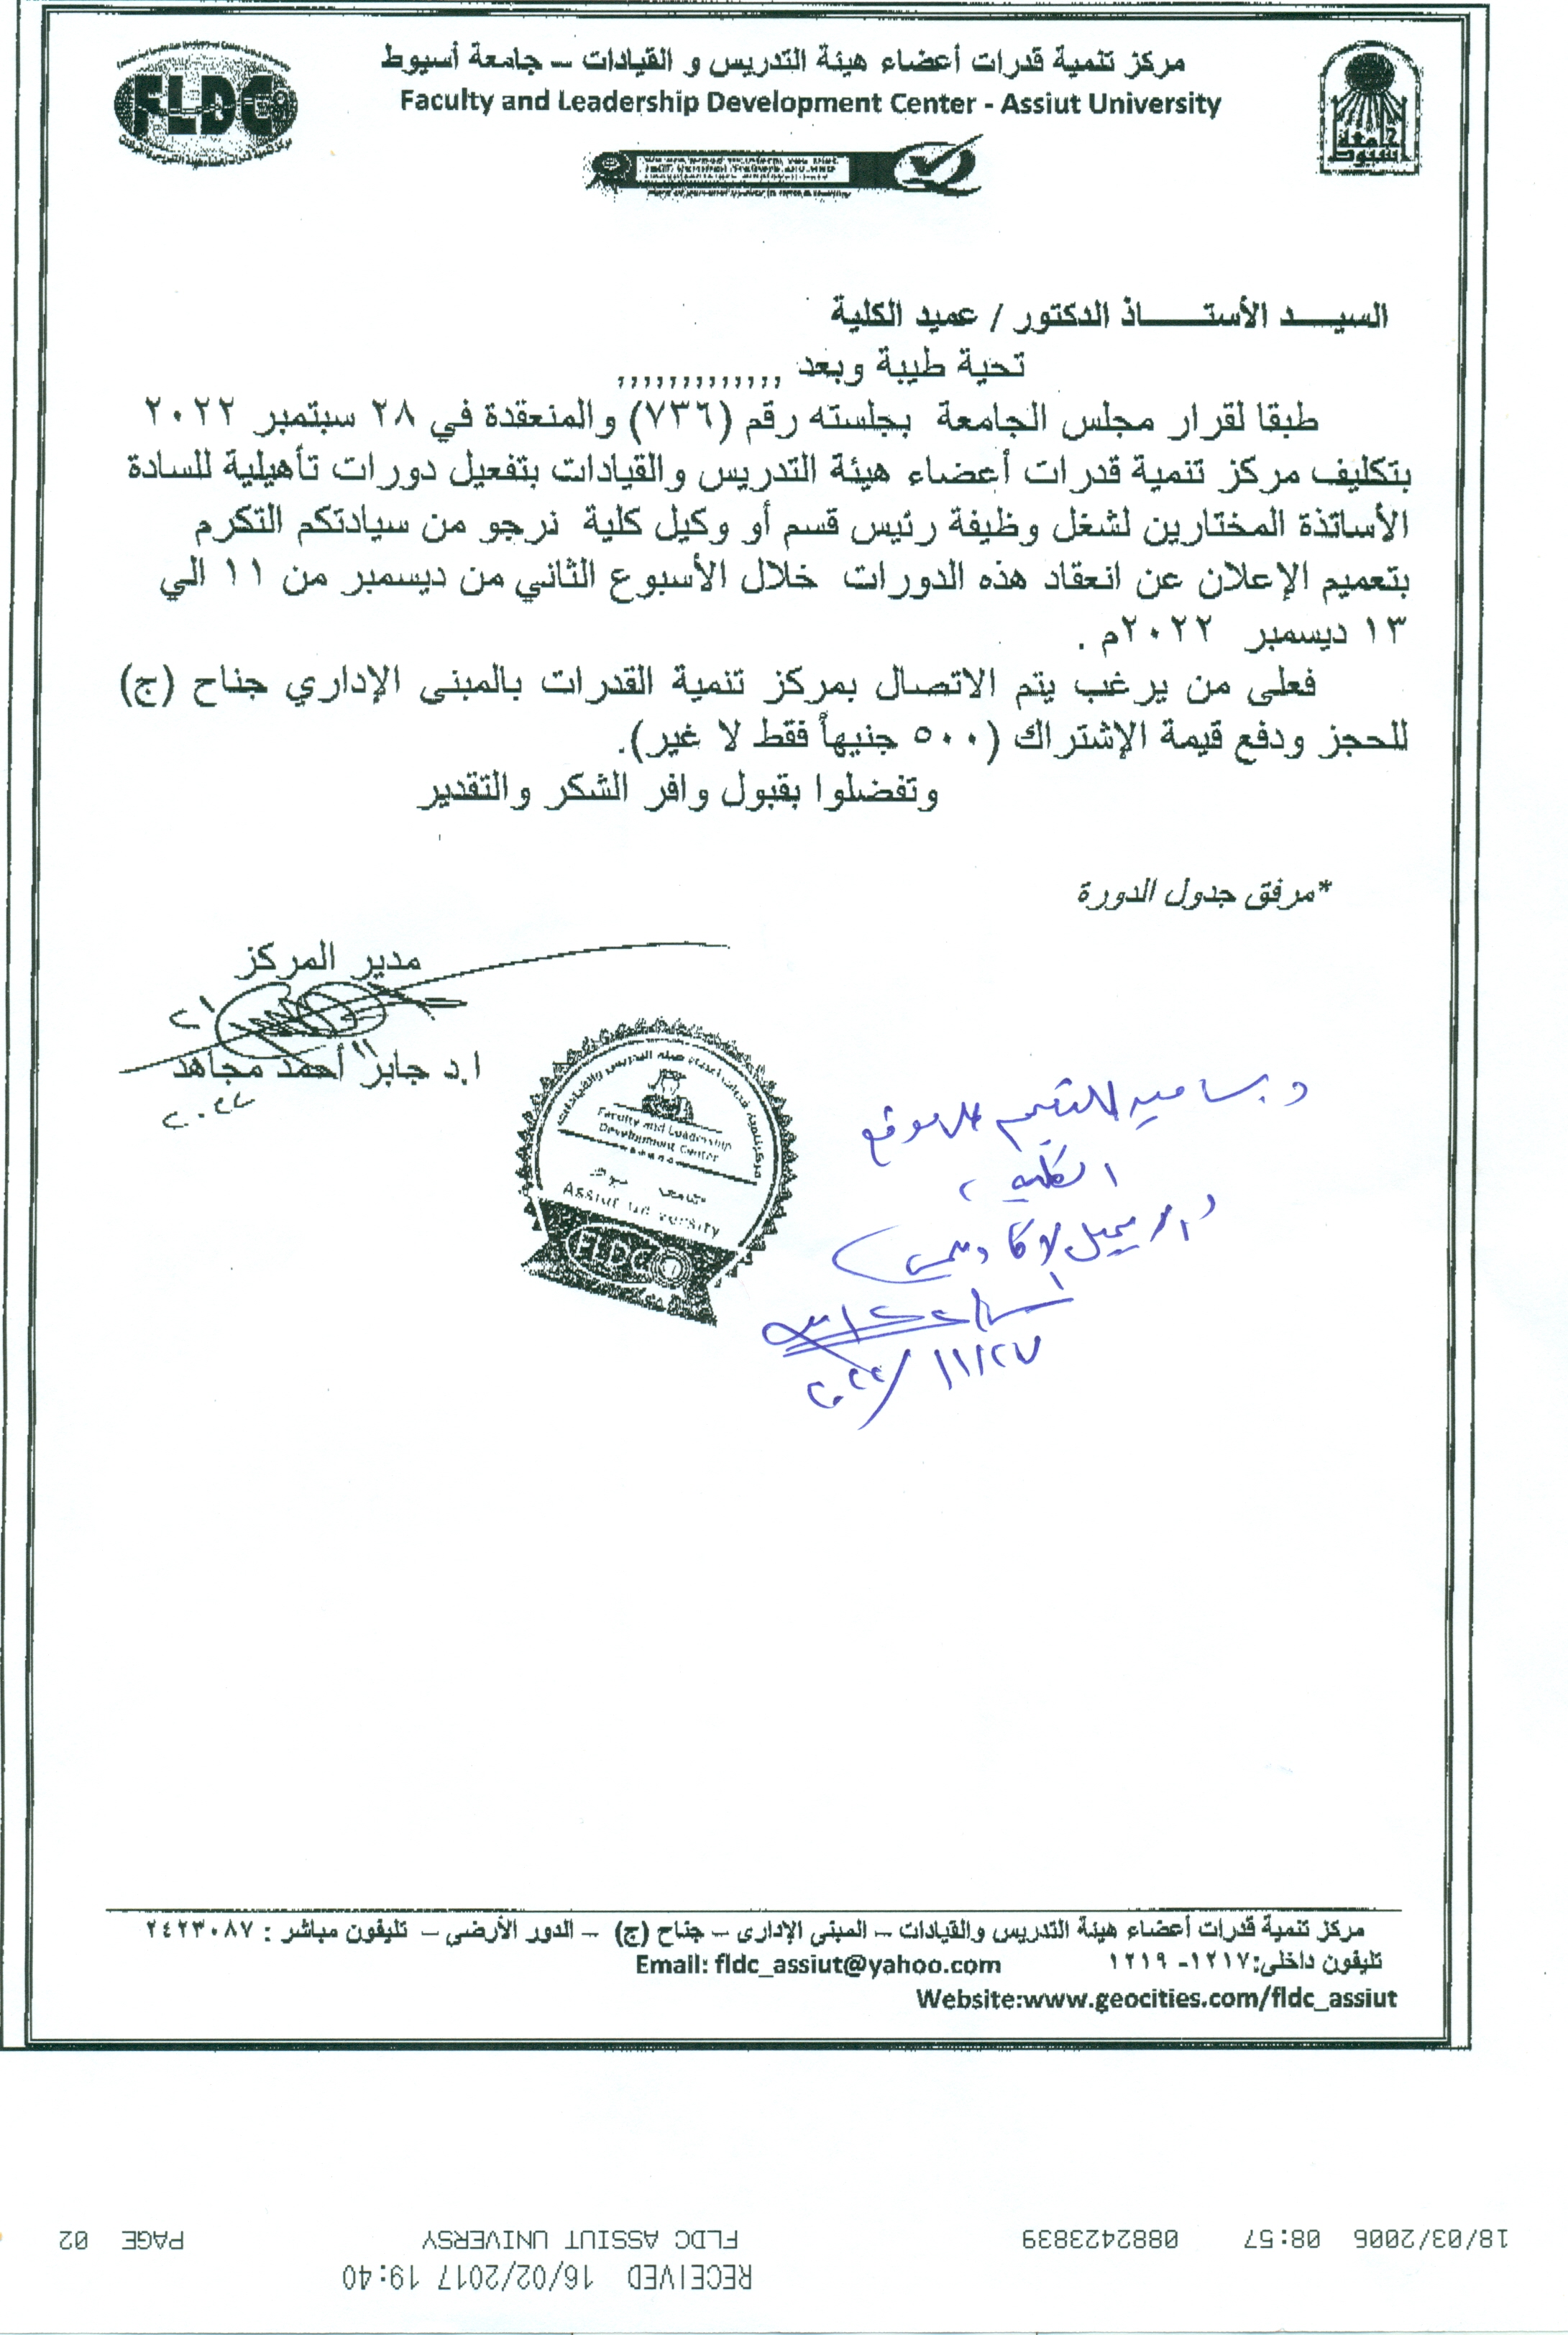 مركز تنمية قدرات أعضاء هيئة التدريس و القيادات – جامعة أسيوط
Faculty and Leadership Development Center - Assiut University
FLDC
جامعة
أسيوط
السيـــد الأستـــــاذ الدكتور / عميد الكلية
تحية طيبة وبعد ,,,,,,,,,,,,,
طبقا لقرار مجلس الجامعة بجلسته رقم (٧٣٦) والمنعقدة في ٢٨ سبتمبر ٢٠٢٢
بتكليف مركز تنمية قدرات أعضاء هيئة التدريس والقيادات بتفعيل دورات تأهيلية للسادة
الأساتذة المختارين لشغل وظيفة رئيس قسم أو وكيل كلية نرجو من سيادتكم التكرم
بتعميم الإعلان عن انعقاد هذه الدورات خلال الأسبوع الثاني من ديسمبر من ١١ الي
١٣ ديسمبر ٢٠٢٢م .
فعلى من يرغب يتم الاتصال بمركز تنمية القدرات بالمبنى الإداري جناح (ج)
للحجز ودفع قيمة الإشتراك (٥٠٠ جنيهاً فقط لا غير).
وتفضلوا بقبول وافر الشكر والتقدير
*مرفق جدول الدورة
مدير المركز
ا.د جابر أحمد مجاهد
٢٠٢٢
Faculty and Leadership
Development Center
Assiut University
FLDC
الكلية
٢٠٢٢/١١/٢٧
مركز تنمية قدرات أعضاء هيئة التدريس والقيادات – المبنى الإدارى – جناح (ج) – الدور الأرضى – تليفون مباشر : ٢٤٢٣٠٨٧
تليفون داخلى:١٢١٧- ١٢١٩ Email: fldc_assiut@yahoo.com
Website:www.geocities.com/fldc_assiut
18/03/2006 08:57 0882423839 FLDC ASSIUT UNIVERSY PAGE 02
RECEIVED 16/02/2017 19:40